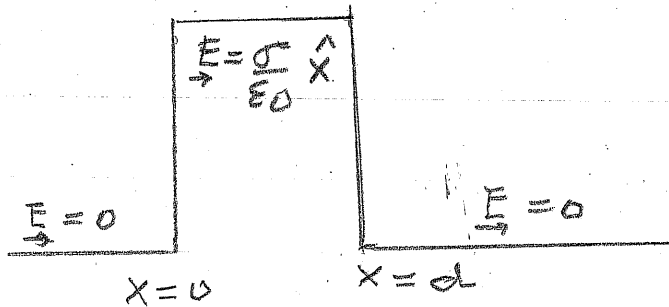 E = σ/ε0 x̂
E = 0
E = 0
x = 0
x = d